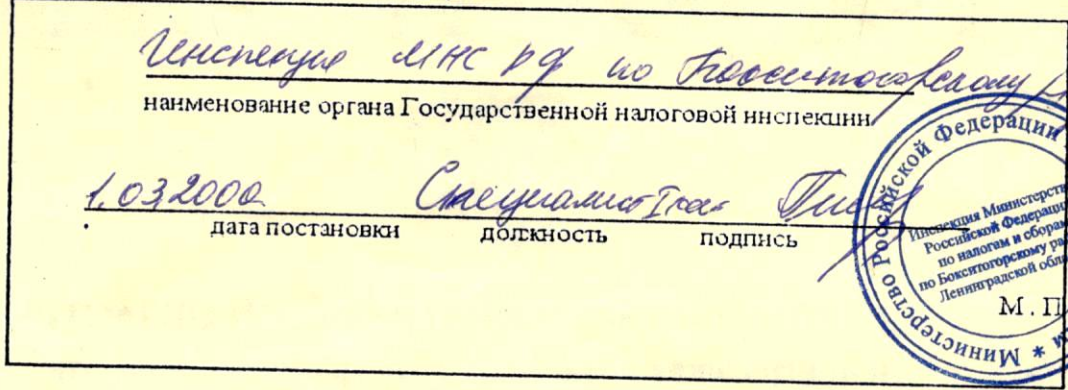 Инспекция МНС РФ по Бокситогорскому
наименование органа Государственной налоговой инспекции
1.03.2000 Специалист I кат
дата постановки должность подпись
Российской Федерации
Министерство
Инспекция Министерст
Российской Федераци
по налогам и сборам
по Бокситогорскому ра
Ленинградской обл
М.П